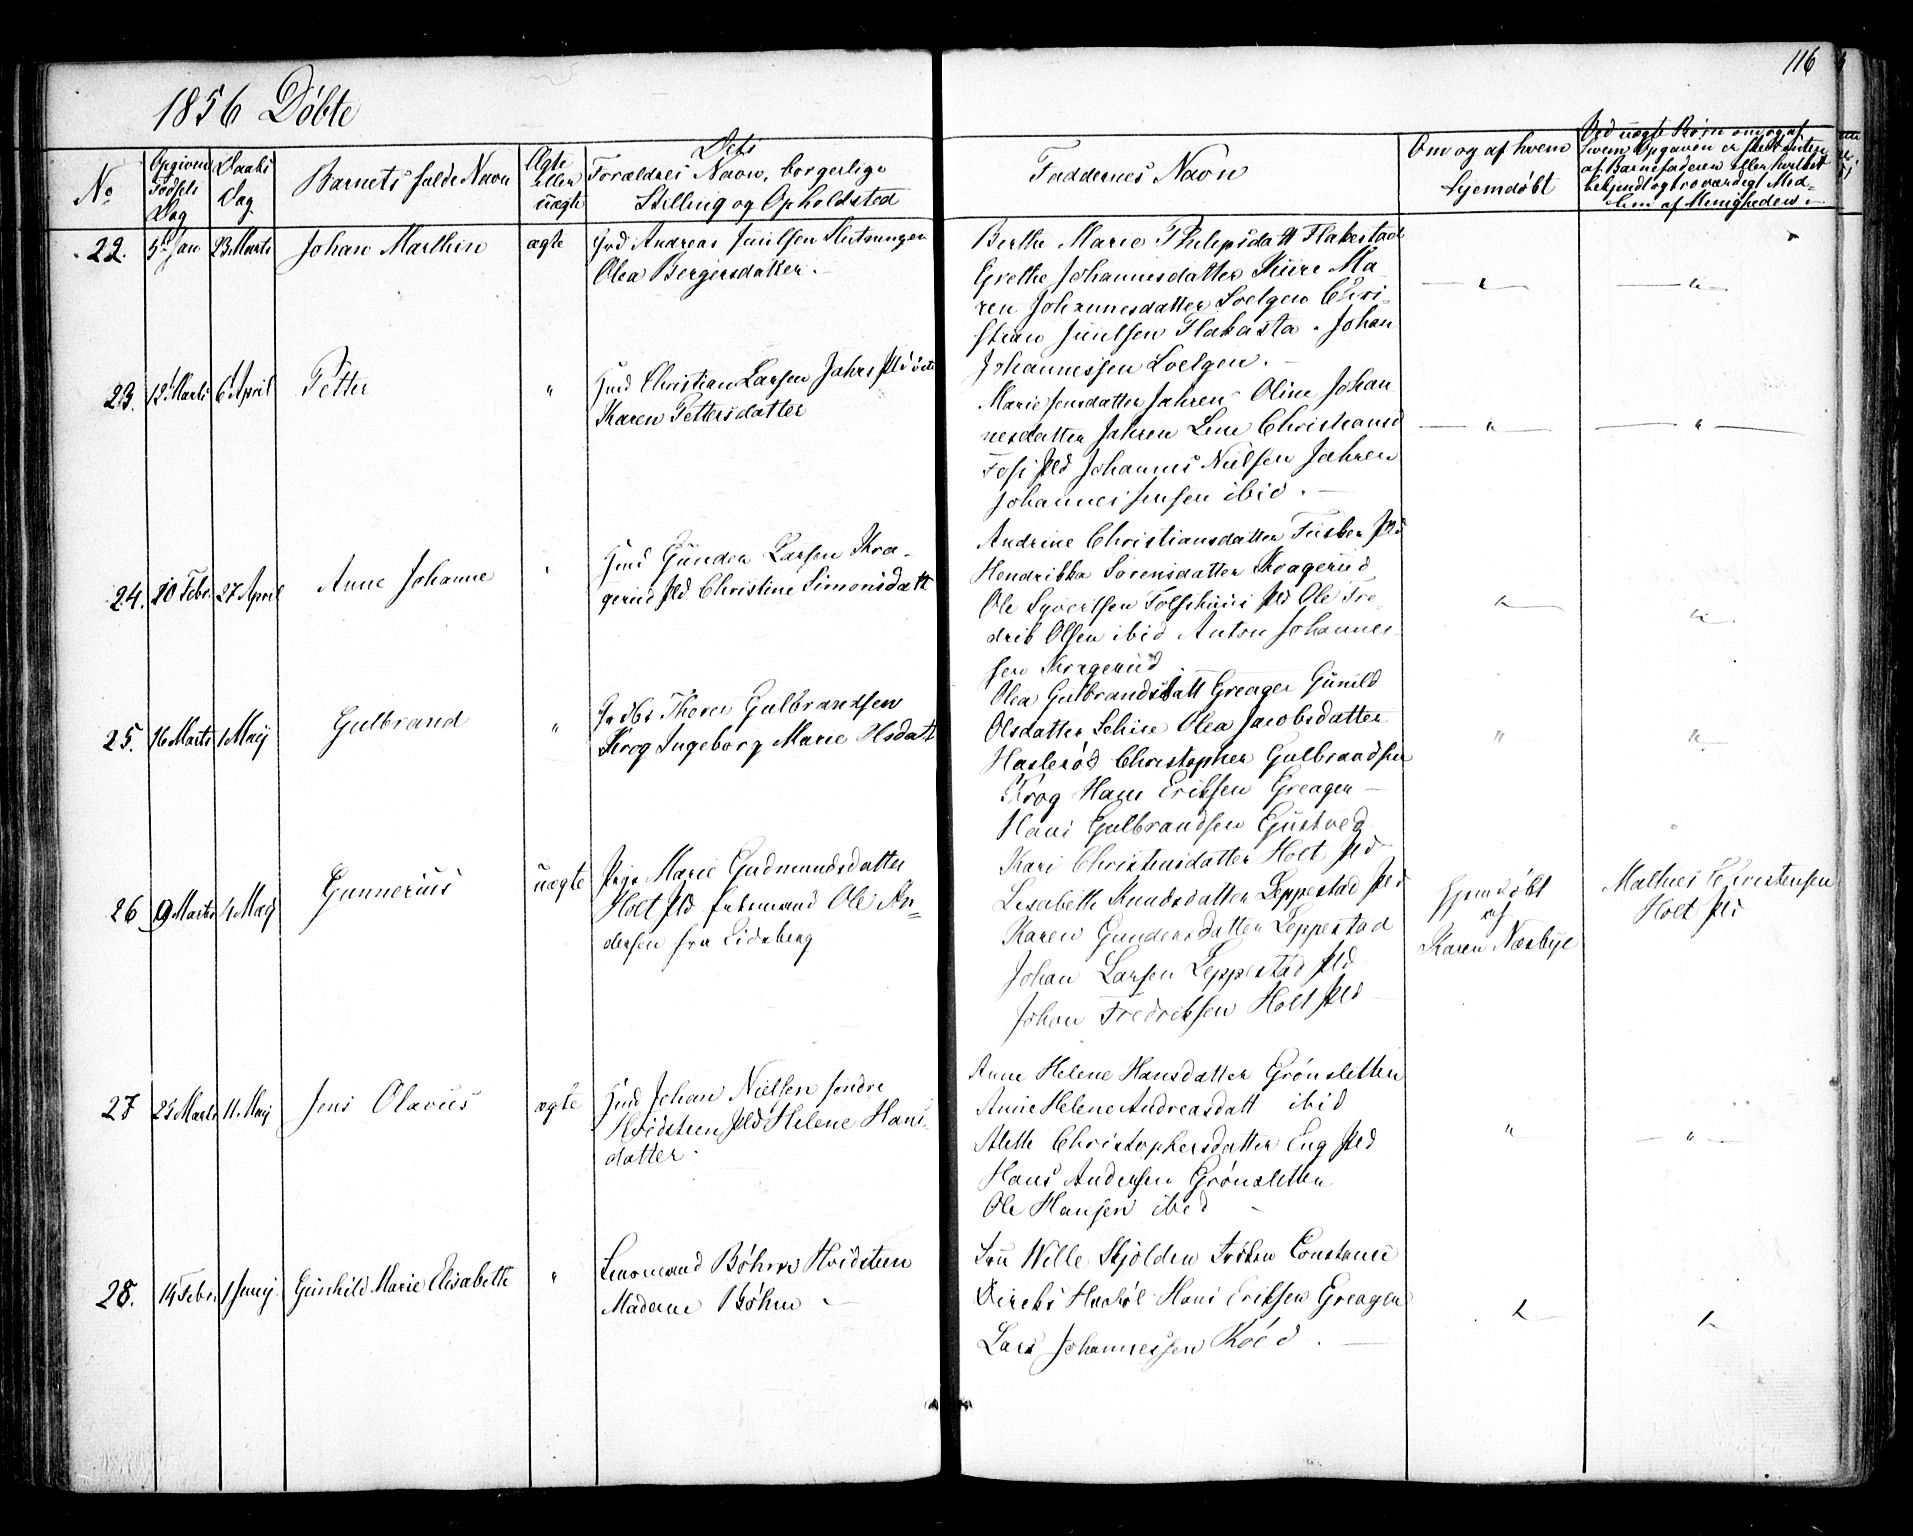 116
1856 Døbte
No
Opgivne Fødsels Dag
Daabs Dag
Barnets fulde Navn
Ægte eller uægte
Dets
Forældres Navn, borgerlige
Stilling og Opholdsted
Faddernes Navn
Om og af hvem
hjemdøbt
Ved uægte Børn om og af
hvem Opgaven er
af Barnefaderen eller hvilket
bekjendt og troværdigt Med-
lem af Menigheden
22. 5 Jan 23 Marts Johan Marthin ægte
Andreas Juulsen
Olea Bergersdatter.
Berthe Marie Philipsdatt Flakestad
Grethe Johannesdatter Skure Ma-
ren Johannesdatter Soelgen Chri-
stian Juulsen Flakasta. Johan
Johannessen Soelgen.
23. 12 Marts 6 April Petter "
Huusmd Christian Larsen Jahr Pld
Karen Pettersdatter
Marie Jensdatter Jahren Oline Johan
nesdatter Jahren Lene Christiansd
Pld Johannes Nielsen Jahren
Johannes Jensen ibid.
24. 20 Febr. 27 April Anne Johanne "
Huusmd Gunder Larsen Kra-
gerud Pld Christine Simonsdatt
Andrine Christiansdatter Pld
Hendrikka Sorensdatter Kragerud
Ole Syvertsen Pld Ole Fre-
drik Olsen ibid Anton Johannes-
sen Kragerud
25. 16 Marts 1 Maij Gulbrand "
Thorer Gulbrandsen
Krog Ingeborg Marie Olsdatt
Olea Gulbrandsdatt Greager Gunild
Olsdatter Olea Jacobsdatter
Haslerød Christopher Gulbrandsen
Krog Hans Eriksen Greager
Hans Gulbrandsen
26 9 Marts 4 Maij Gunnerius uægte
Pige Marie Gudmundsdatter
Holt Pld Ole An-
dersen fra Eidsberg
Kari Christensdatter Holt Pld
Lisabeth Knudsdatter Leppestad Pld
Karen Gundersdatter Leppestad
Johan Larsen Leppestad Pld
Johan Fredriksen Holt Pld
Hjemdøbt
af
Karen Næsbye
Mathies Christensen
Holt Pld
27 25 Marts 11 Maij Jens Olavus ægte
Huusmd Johan Nielsen søndre
Hvidsteen Pld Helene Hans-
datter.
Anne Helene Hansdatter Grønsletten
Anne Helene Andreasdatt ibid
Alette Christophersdatter Eng Pld
Hans Andersen Grønsletten
Ole Hansen ibid
28. 14 Febr. 1 Junij Gunhild Marie Elisabeth "
Lensmand Bøhm Hvidsteen
Madame Bøhm
Fru Wille Skjolden Frøken Constance
Diriks Hans Eriksen Greager
Lars Johannessen